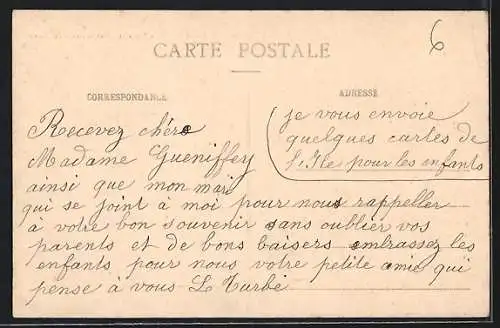 6
CARTE POSTALE
CORRESPONDANCE
ADRESSE
Recevez chère
Madame Gueniffey
ainsi que mon mari
qui se joint à moi pour nous rappeller
à votre bon souvenir sans oublier vos
parents et de bons baisers embrassez les
enfants pour nous votre petite amie qui
pense à vous Le Turbe
je vous envoie
quelques cartes de
l'Ile pour les enfants